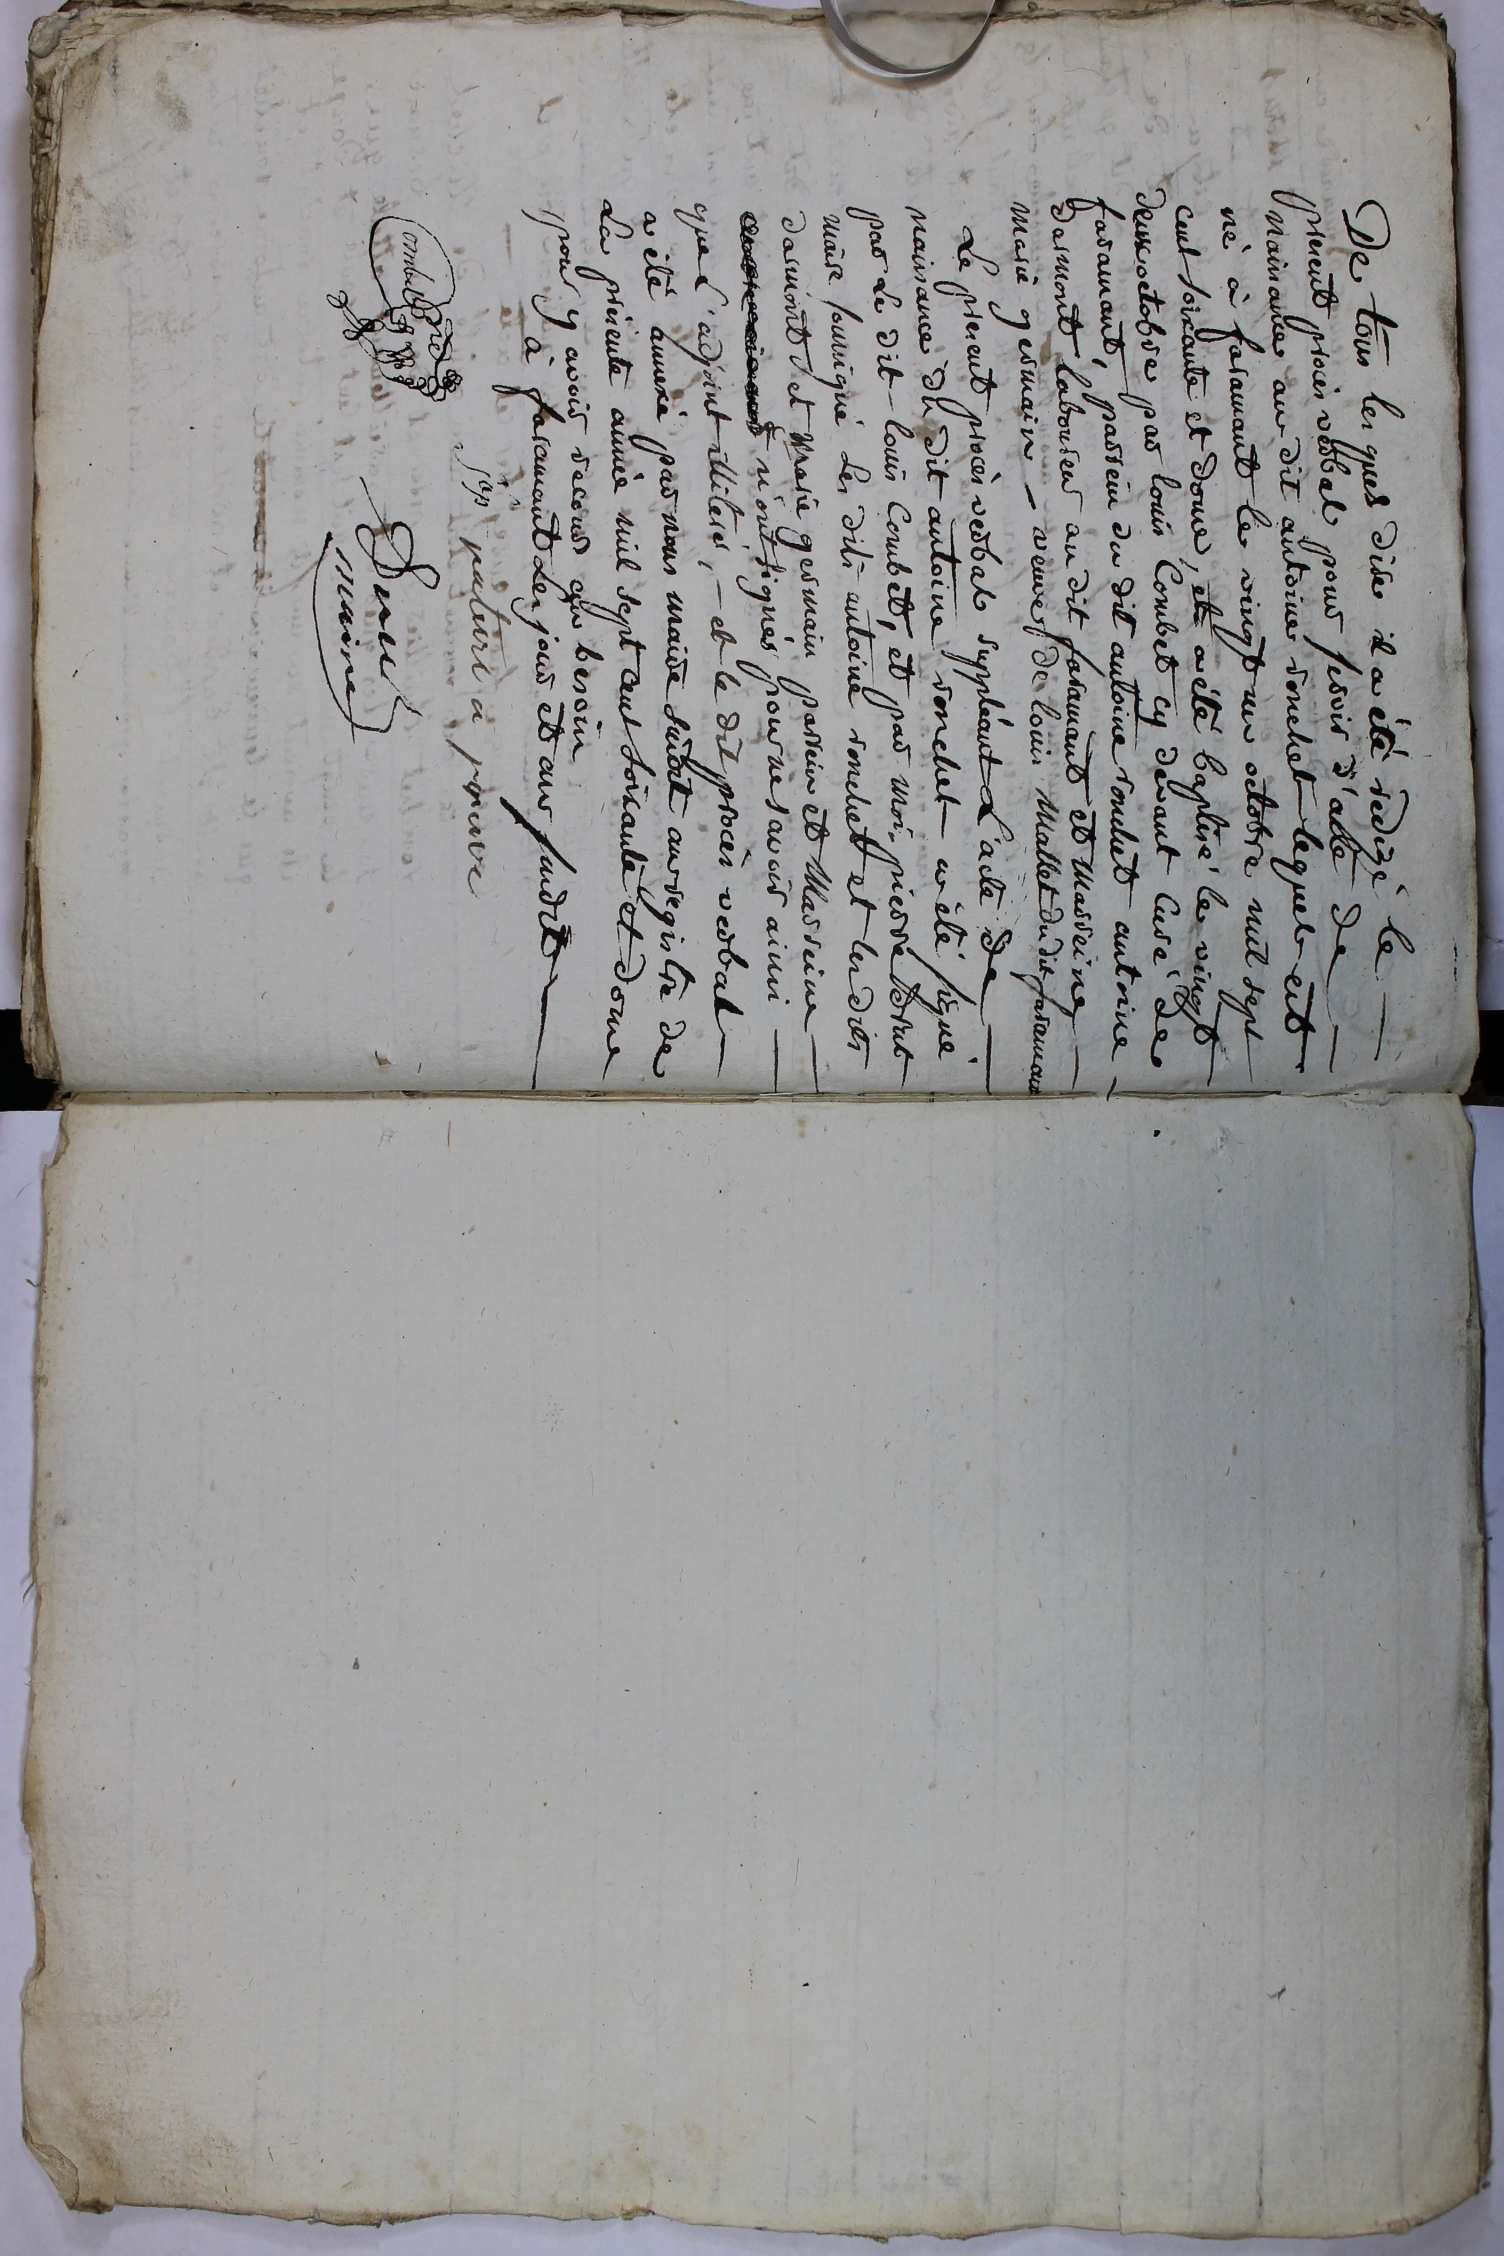 De tous lesques dire il a été redigé le
present procès verbal pour servir d'acte de
naissance au dit antoine ronchet lequel est
né à faramant le vingt un octobre mil sept
cent soixante et douse, et a été baptisé le vingt
deux octobre par louis Combet cy devant Curé de
faramant, parrein du dit antoine ronchet antoine
darmont laboureur au dit faramant et marreine
marie germain – veuve de louis mallet du dit faramant
Le present procès verbal suppléant L'acte de
naissance du dit antoine ronchet a été signé
par le dit louis Combet, et par moi pierre
maire soussigné Les dits antoine ronchet et les dits
darmont et marie germain parrein et marreine
n'ont signés pour ne savoir ainsi
que L'adjoint illiteré, – et le dit procès verbal
a été annexé par nous maire sudit au registre de
La présente année mil sept cent soixante et douse
pour y avoir recours au besoin
à faramant Les jour et an susdits
Combet
maire